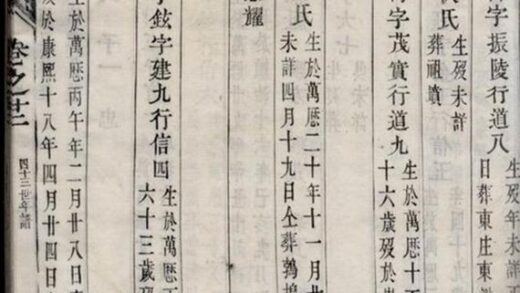 字振陵行道八
生歿年未詳
日葬東庄東
氏
生歿未詳
葬祖墳
字茂實行道九
生於萬厯十
十六歲歿於
氏
生於萬厯二十年十一月
未詳四月十九日仝葬
耀
字鉉字建九行信四
生於萬厯
六十三歲歿
生於萬厯丙午年二月廿八日
於康熙十八年四月廿四日
卷之廿二
四十三世年譜